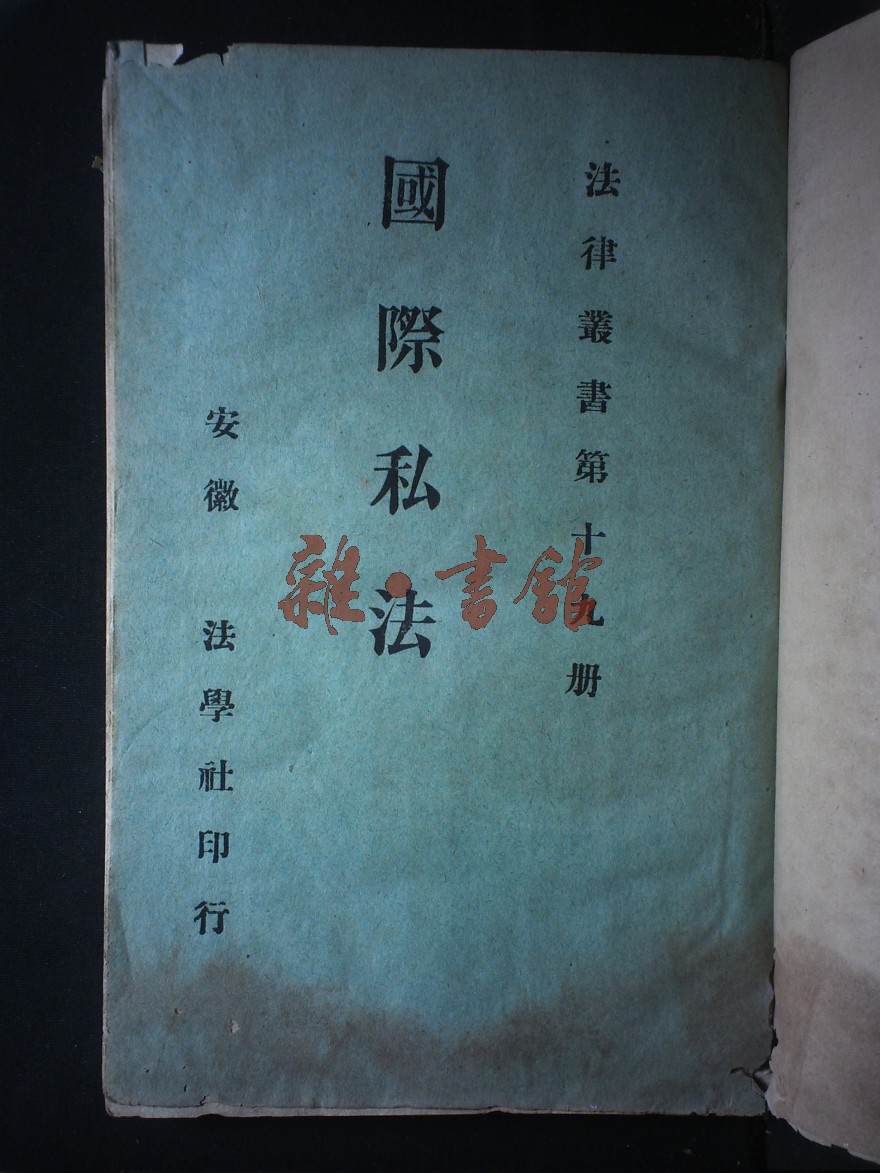 法律叢書第十九册
國際私法
安徽 法學社印行
雜·書館